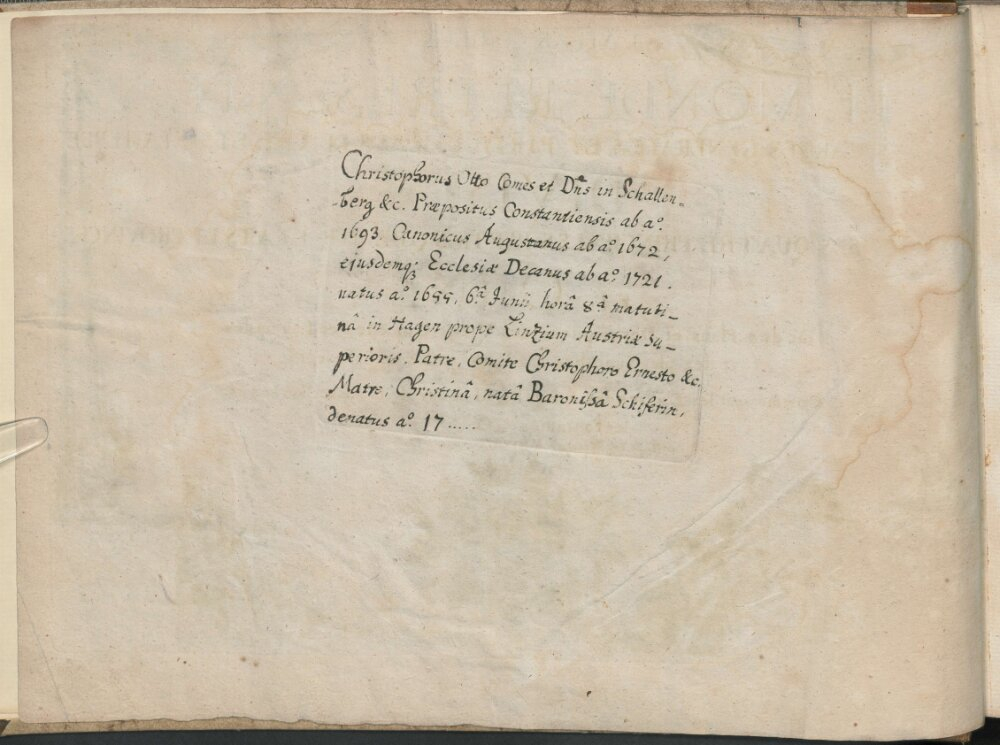 Christophorus Otto Comes et Dn̄s in Schallen=
=berg &c. Præpositus Constantiensis ab aº.
1693. Canonicus Augustanus ab aº 1672,
ejusdemq; Ecclesiæ Decanus ab aº 1721.
natus aº 1655. 6.â Junii, horâ 8â matuti_
nâ in Hagen prope Linzium Austriæ su_
perioris. Patre, Comite Christophoro Ernesto &c.
Matre, Christinâ, natâ Baronissâ Schiferin,
denatus aº. 17.....